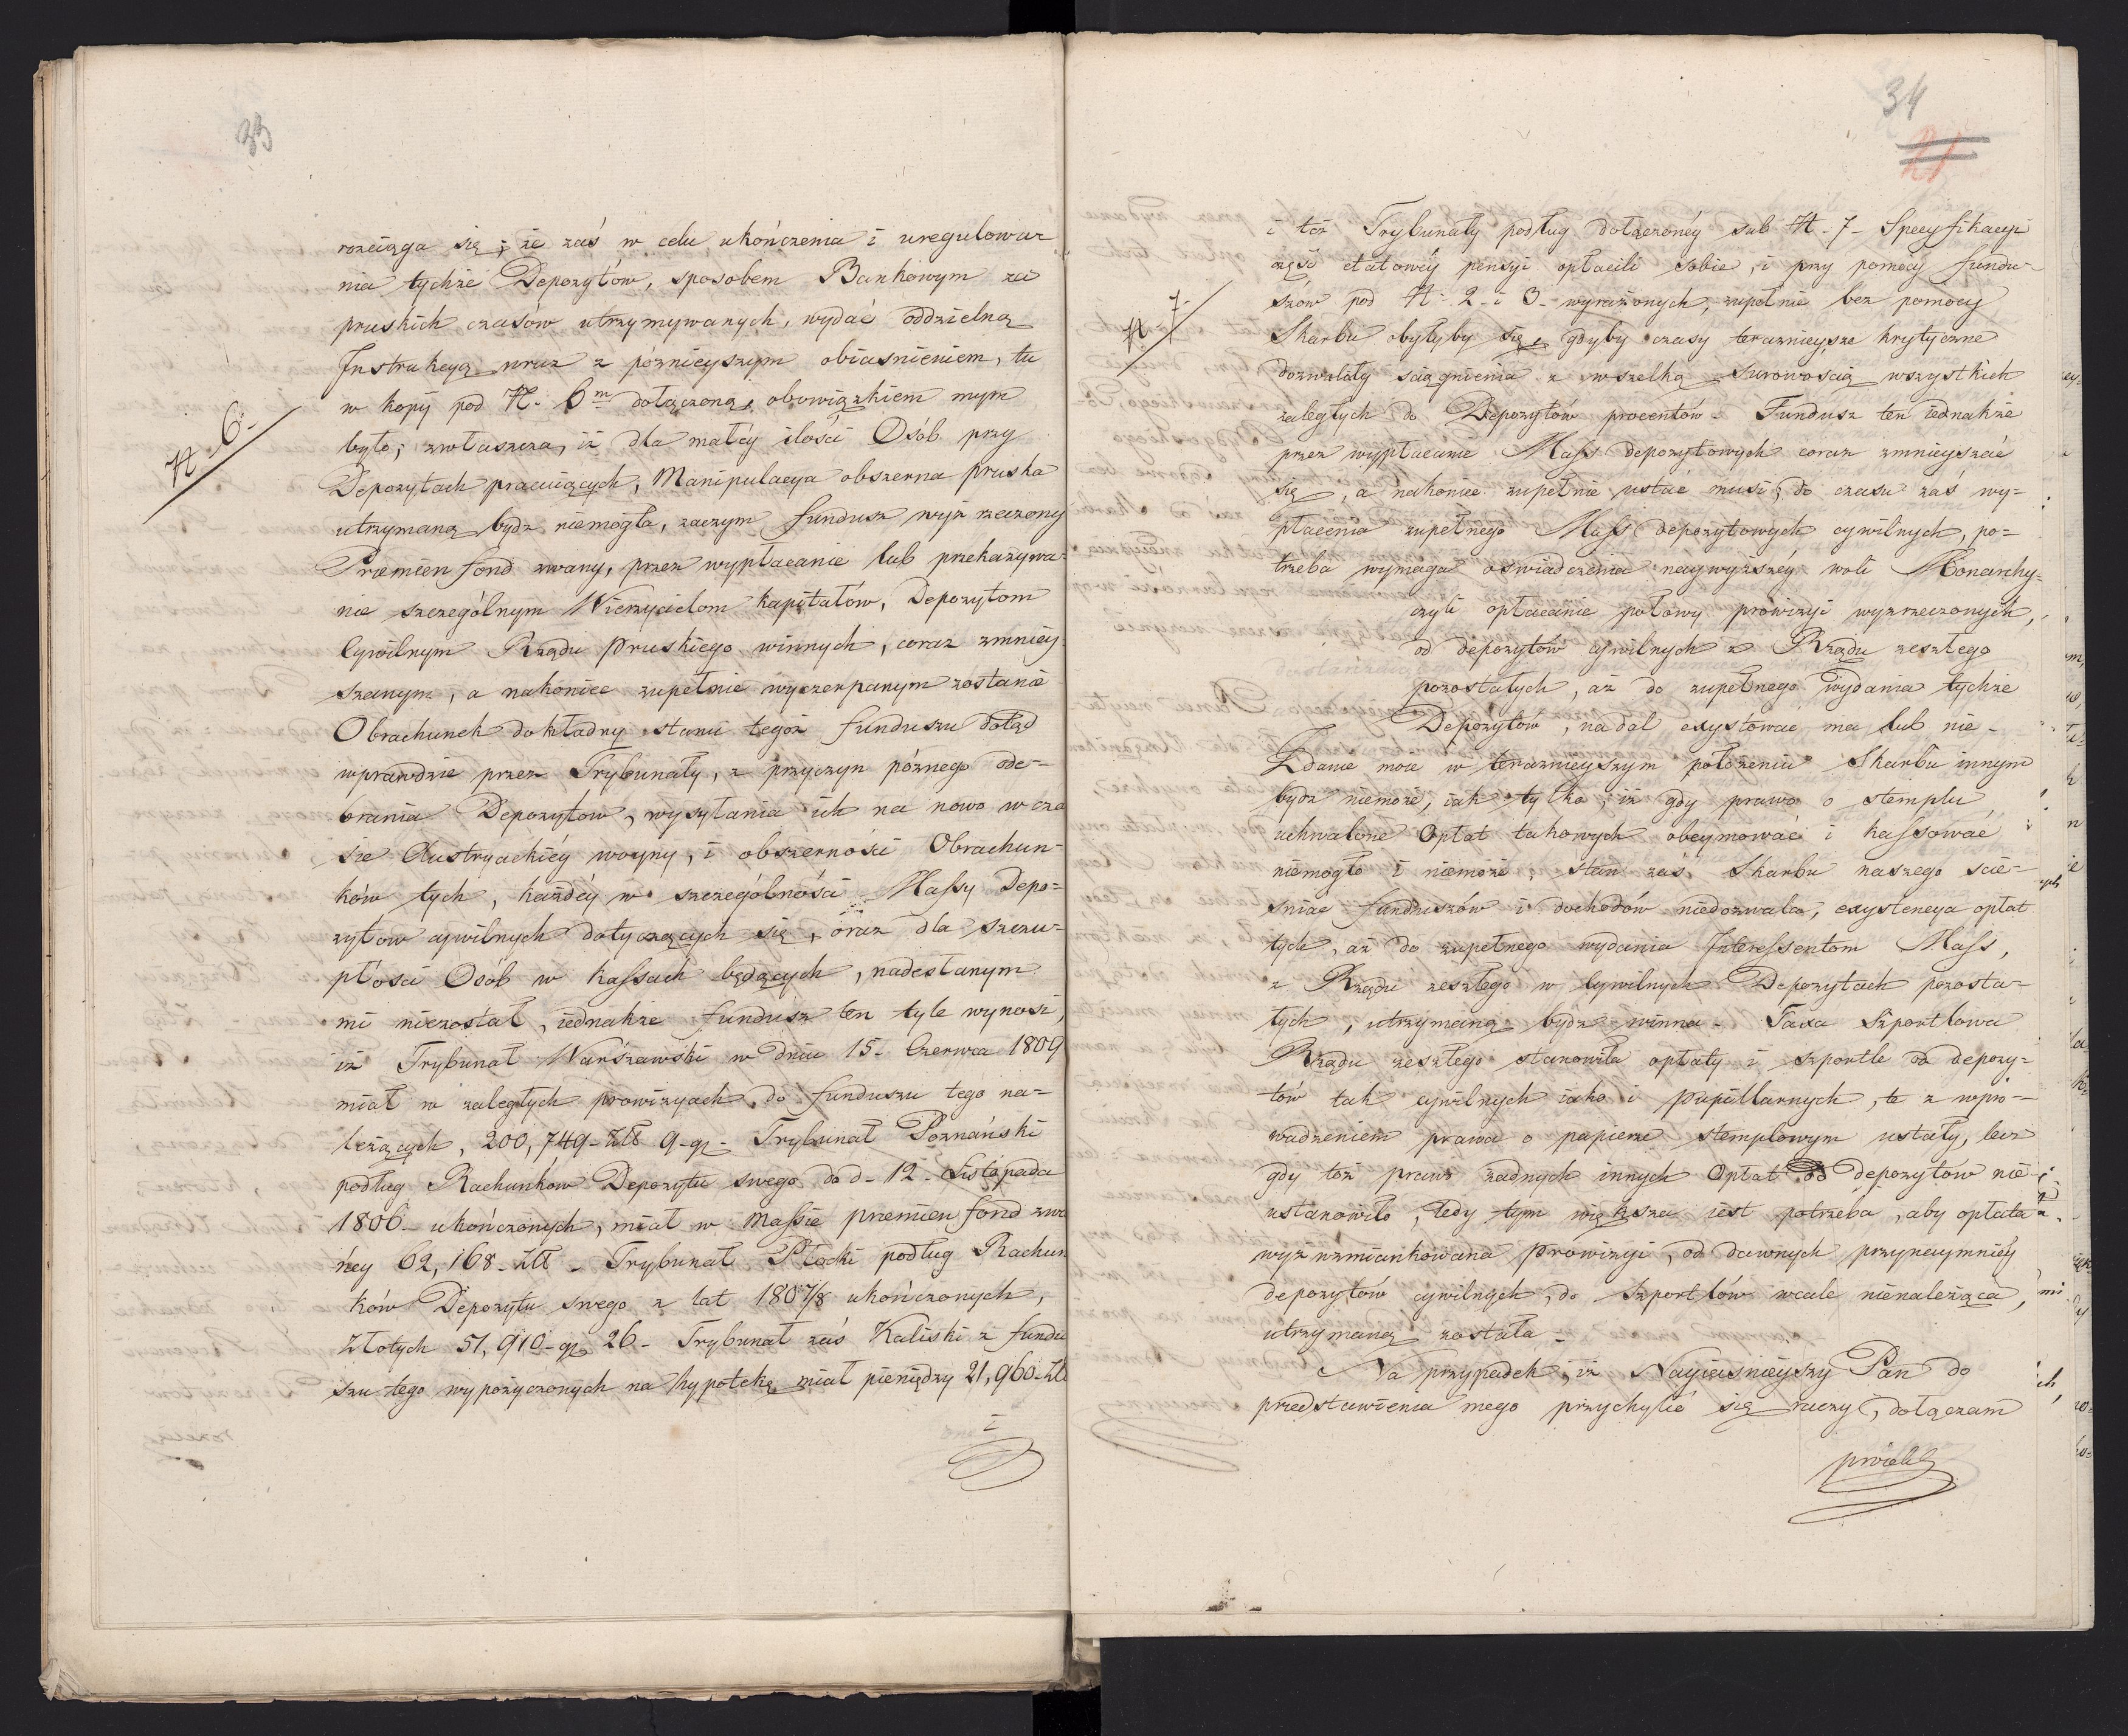 33
rozciąga się; że zaś w celu ukończenia i uregulowa-
nia tychże Depozytów, sposobem Bankowym za
pruskich czasów utrzymywanych, wydać oddzielną
Instrukcyą wraz z póznieyszym obiasnieniem, tu
w kopij pod N. 6m dołączoną, obowiązkiem mym
N. 6.
było; zwłaszcza, iż dla małéy ilości Osób przy
Depozytach pracuiących, Manipulacya obszerna pruska
utrzymaną bydz niemogła, zaczym fundusz wyż rzeczony
Præmien fond zwany, przez wypłacanie lub przekazywa-
nie szczególnym Wierzycielom kapitałów, Depozytom
Cywilnym Rządu Pruskiego winnych, coraz zmniéy-
szanym, a nakoniec zupełnie wyczerpanym zostanie
Obrachunek dokładny stanu tegoż funduszu dotąd
wprawdzie przez Trybunały, z przyczyn póznego ode-
brania Depozytow, wysyłania ich na nowo w cza
sie Austryackiéy woyny, i obszerności Obrachun-
ków tych, każdéy w szczególności Massy Depo-
zytów cywilnych dotyczących się, oraz dla szczu-
płości Osób w Kassach będących, nadesłanym
mi niezostał, iednakże fundusz ten tyle wynosi,
iż Trybunał Warszawski w dniu 15. Czerwca 1809
miał w zaległych prowizyach do funduszu tego na-
leżących, 200,749 Złł 9 gr. Trybunał Poznański
podług Rachunków Depozytu swego do d. 12. Listopada
1806 ukończonych, miał w Massie premien fond zwa
néy 62,168 Złł. Trybunał Płocki podług Rachun
ków Depozytu swego z lat 1807/8 ukończonych,
Złotych 51,910 gr 26. Trybunał zaś Kaliski z fundu
szu tego wypożyczonych na hypotekę miał pieniędzy 21,960 Złł
i
34
21
i też Trybunały podług dołączonéy sub N. 7. Specyfikacyi
częśc etatowéy pensyi opłacili sobie, i przy pomocy fundu-
szów pod N. 2. i 3. wyrażonych, zupełnie bez pomocy
N. 7.
Skarbu obyłyby się, gdyby czasy teraznieysze krytyczne
dozwoliły sciągnienia z wszelką surowoscią wszystkich
zaległych do Depozytów procentów. Fundusz ten iednakże
przez wypłacanie Mass depozytowych coraz zmnieyszać
się, a nakoniec zupełnie ustać musi; do czasu zaś wy-
płacenia zupełnego Mass depozytowych cywilnych, po-
trzeba wymaga oswiadczenia naywyższéy woli Monarchy-
czyli opłacanie połowy prowizyi wyzrzeczonych,
od depozytów cywilnych z Rządu zeszłego
pozostałych, aż do zupełnego wydania tychże
Depozytów, nadal exystować ma lub nie.
Zdanie moie w teraznieyszym położeniu Skarbu innym
bydz niemoże, iak tylko, iż gdy prawo o stemplu
uchwalone Opłat takowych obeymować i kassować
niemogło i niemoże, stan zaś Skarbu naszego scie-
sniać funduszów i dochodów niedozwala, exystencya opłat
tych, aż do zupełnego wydania Interessentom Mass,
z Rządu zeszłego w Cywilnych Depozytach pozosta-
łych, utrzymaną bydz winna. Taxa Szportlowa
Rządu zeszłego stanowiła opłaty i szportle od depozy-
tów tak cywilnych iako i pupillarnych, te z wpro-
wadzeniem prawa o papierze stemplowym ustały, lecz
gdy toż prawo żadnych innych Opłat od depozytów nie
ustanowiło, tedy tym większa iest potrzeba, aby opłata
wyż wzmiankowana prowizyi, od dawnych przynaymniéy
depozytów cywilnych, do szportlów wcale nienależąca,
utrzymaną została.
Na przypadek, iż Nayiasnieyszy Pan do
przedstawienia mego przychylić się raczy, dołączam